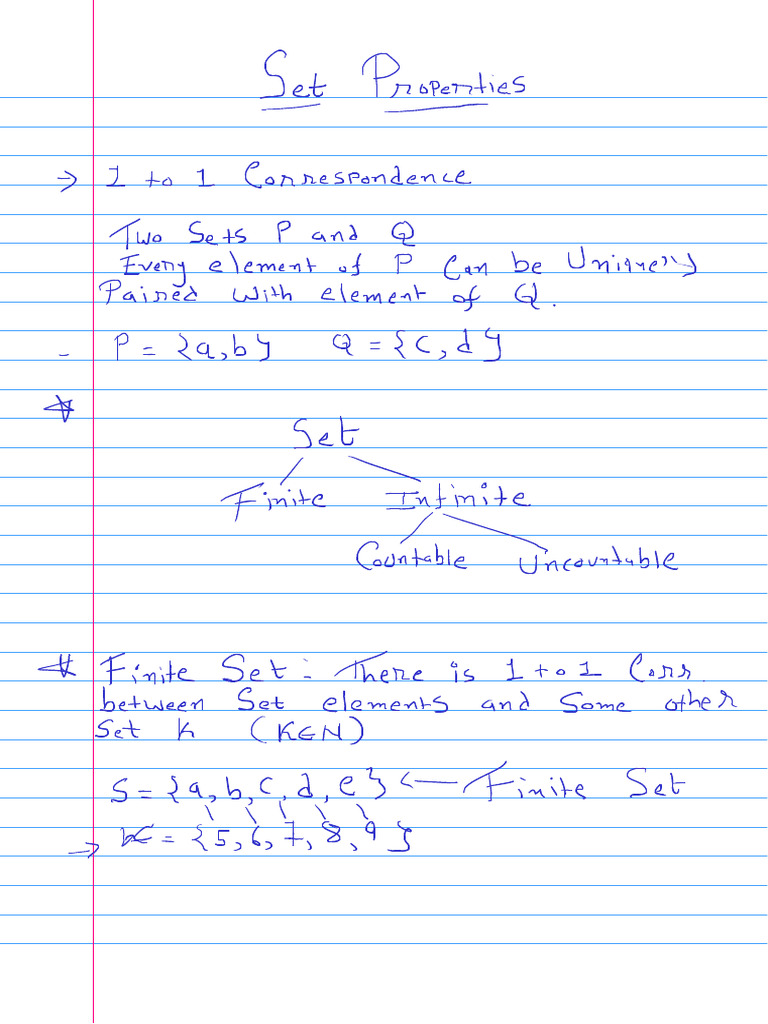 Set Properties
→ 1 to 1 Correspondence
Two Sets P and Q
Every element of P Can be Uniquely
Paired with element of Q.
- P = {a, b} Q = {c, d}
Set
Finite Infinite
Countable Uncountable
* Finite Set : There is 1 to 1 Corr.
between Set elements and Some other
Set K (K∈N)
S = {a, b, c, d, e} ← Finite Set
→ K = {5, 6, 7, 8, 9}